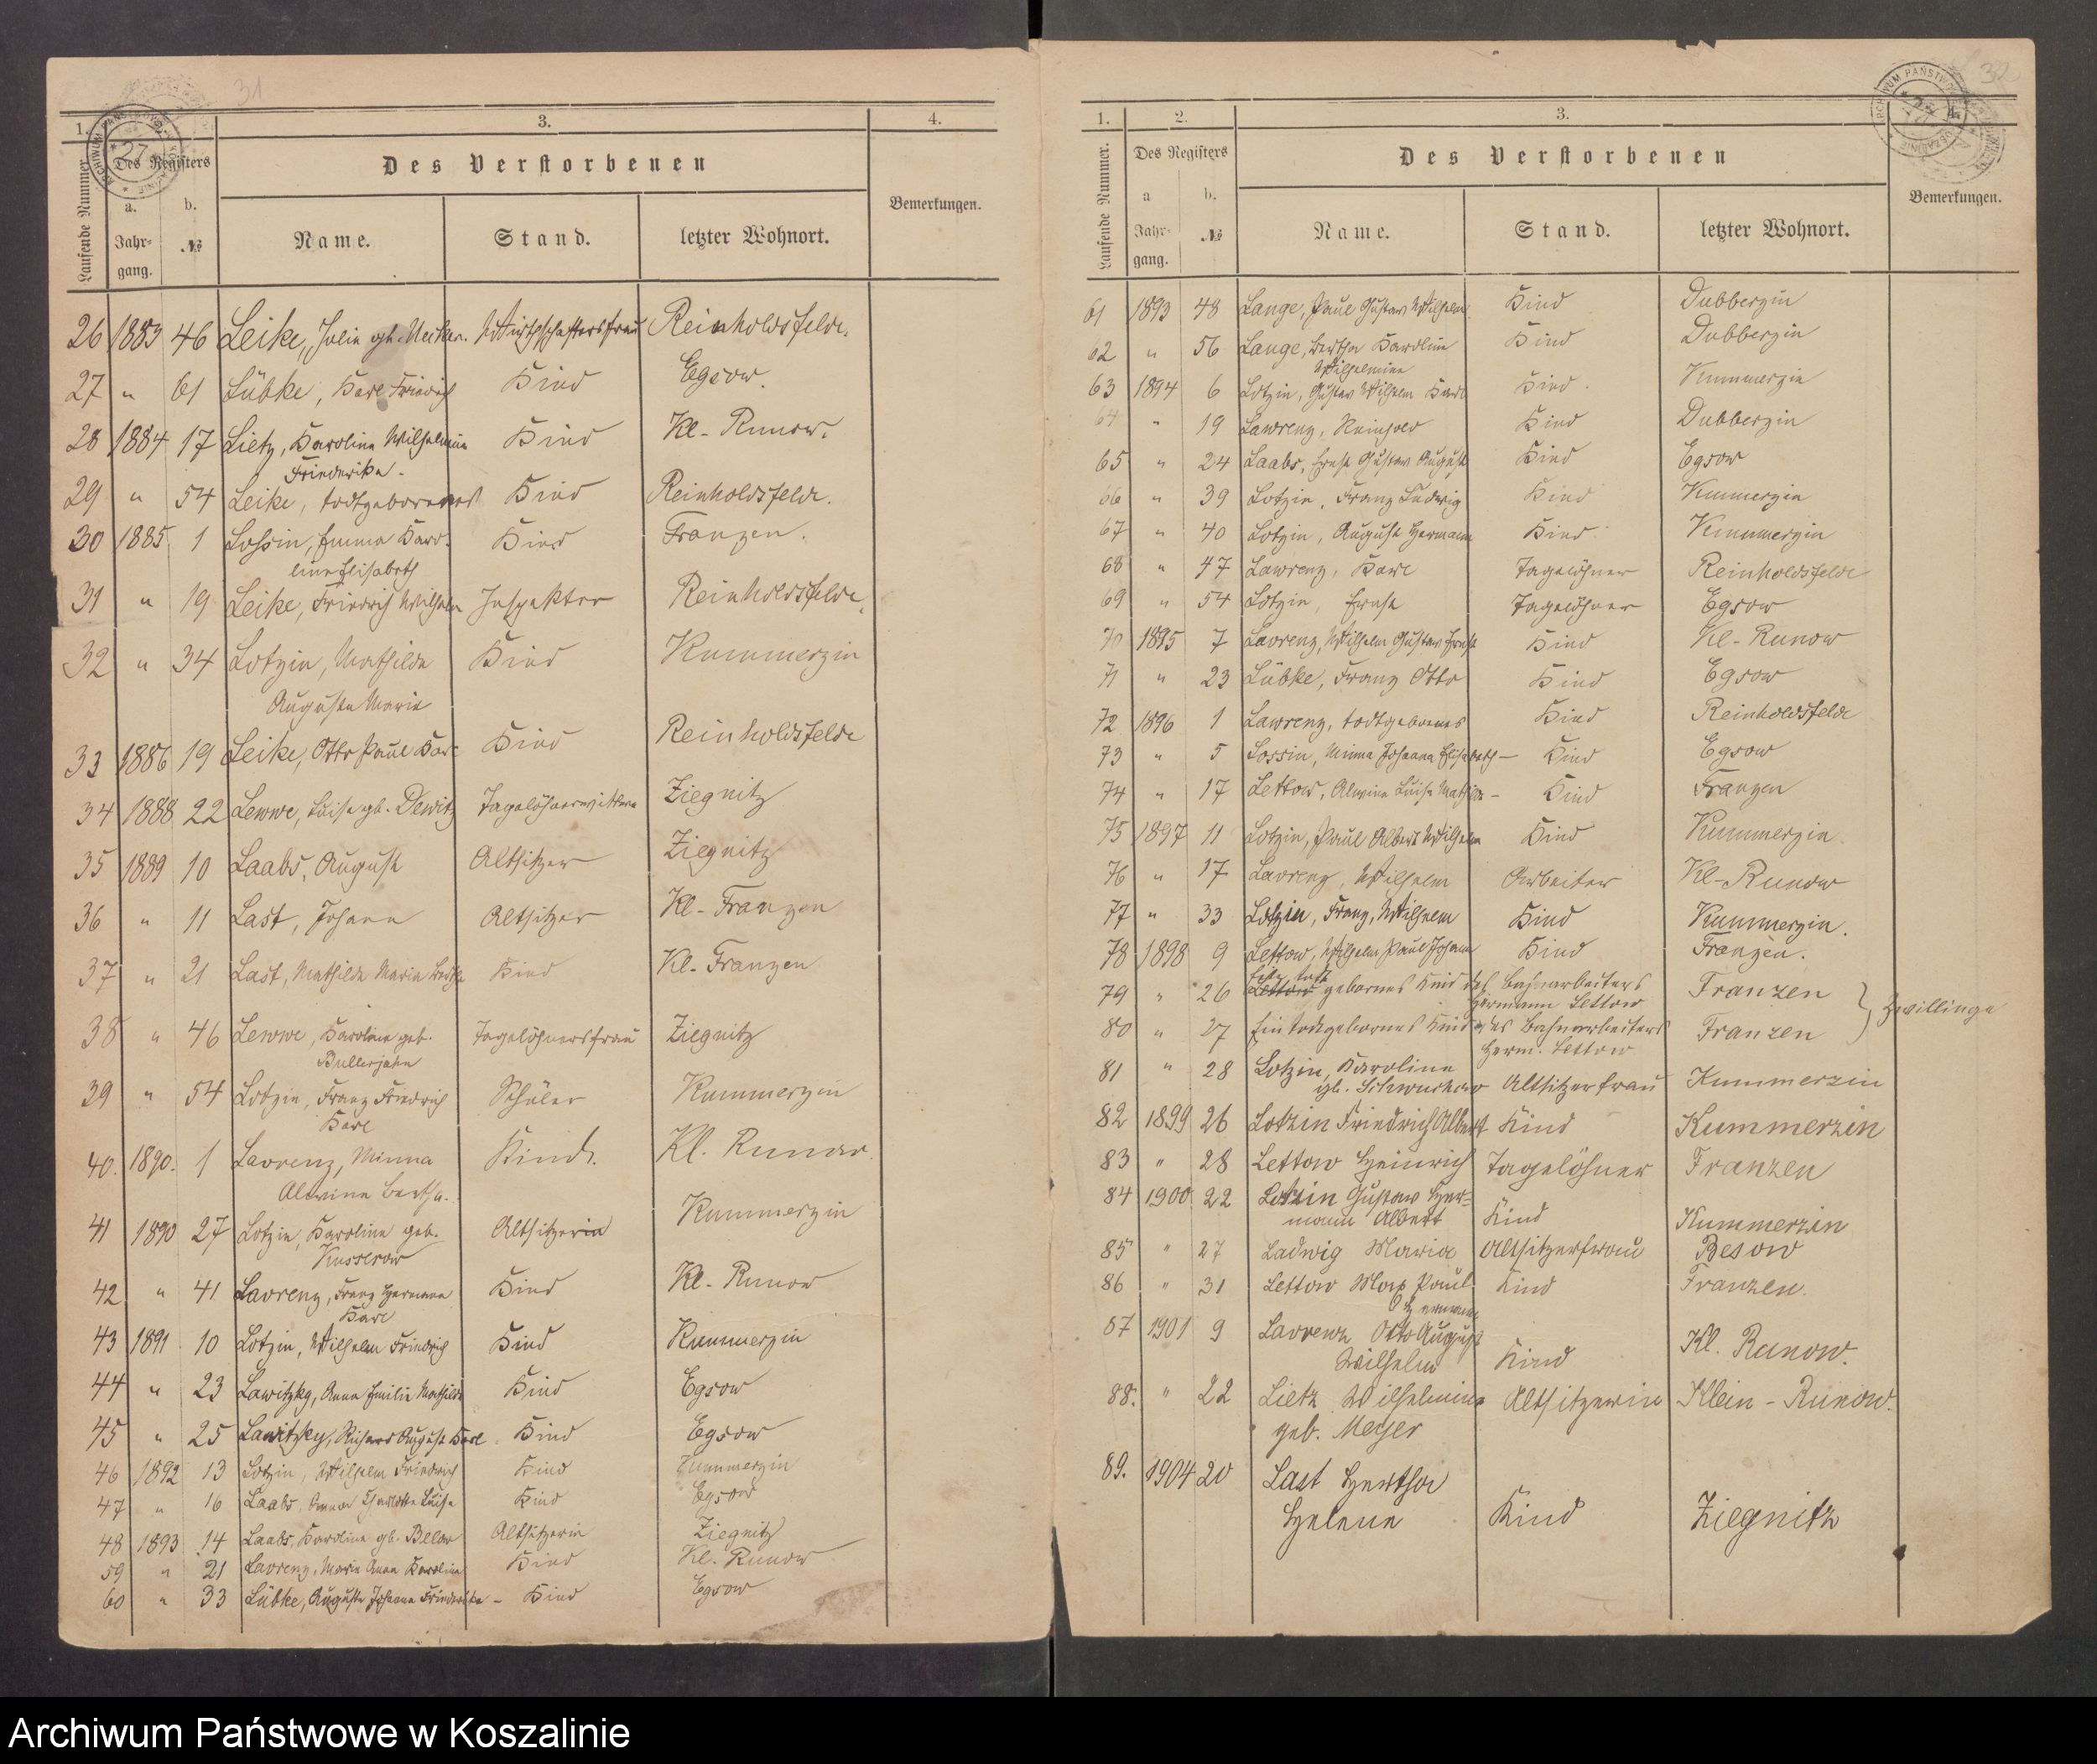 31
1.
3.
4.
Laufende Nummer
Des Registers
a.
b.
Jahr-
gang.
№
Des Verstorbenen
Name.
Stand.
letzter Wohnort.
Bemerkungen.
26 1883 46 Leike, Julie gb. Wirthschaftersfrau Reinholdsfelde.
27 " 61 Lübke, Karl Friedrich Kind Egsow.
28 1884 17 Lietz, Karoline Wilhelmine Kind Kl-Runow.
Friederike.
29 " 54 Leike, todtgeborenes Kind Reinholdsfelde.
30 1885 1 Lossin, Emma Karo- Kind Franzen.
line Elisabeth
31 " 19 Leike, Friedrich Wilhelm Inspektor Reinholdsfelde.
32 " 34 Lotzin, Mathilde Kind Kummerzin
Auguste Marie
33 1886 19 Leike, Otto Paul Karl Kind Reinholdsfelde
34 1888 22 Lewwe, Luise gb. Dewitz Tagelöhnerwittwe Ziegnitz
35 1889 10 Laabs, August Altsitzer Ziegnitz
36 " 11 Last, Johann Altsitzer Kl-Franzen
37 " 21 Last, Mathilde Marie Bertha Kind Kl-Franzen
38 " 46 Lewwe, Karoline geb. Tagelöhnersfrau Ziegnitz
Bullerjahn
39 " 54 Lotzin, Franz Friedrich Schüler Kummerzin
Karl
40. 1890. 1 Lavrenz, Minna Kind. Kl. Runow.
Alwine Bertha.
41 1890 27 Lotzin, Karoline geb. Altsitzerin Kummerzin
Kusserow
42 " 41 Lavrenz, Franz Hermann Kind Kl-Runow
Karl
43 1891 10 Lotzin, Wilhelm Friedrich Kind Kummerzin
44 " 23 Lawitzky, Anna Emilie Mathilde Kind Egsow
45 " 25 Lawitzky, Richard August Karl Kind Egsow
46 1892 13 Lotzin, Wilhelm Friedrich Kind Kummerzin
47 " 16 Laabs, Charlotte Luise Kind Egsow
48 1893 14 Laabs, Karoline gb. Below Altsitzerin Ziegnitz
59 " 21 Lavrenz, Marie Anna Karoline Kind Kl. Runow
60 " 33 Lübke, Auguste Johanna Friederike - Kind Egsow
32
1.
2.
3.
4.
Laufende Nummer.
Des Registers
a
b.
Jahr-
gang.
№
Des Verstorbenen
Name.
Stand.
letzter Wohnort.
Bemerkungen.
61 1893 48 Lange, Paul Gustav Wilhelm Kind Dubberzin
62 " 56 Lange, Bertha Karoline Kind Dubberzin
Wilhelmine
63 1894 6 Lotzin, Gustav Wilhelm Karl Kind. Kummerzin
64 " 19 Lawrenz, Reinhold Kind Dubberzin
65 " 24 Laabs, Ernst Gustav August Kind Egsow
66 " 39 Lotzin, Franz Ludwig Kind Kummerzin
67 " 40 Lotzin, August Hermann Kind Kummerzin
68 " 47 Lawrenz, Karl Tagelöhner Reinholdsfelde
69 " 54 Lotzin, Ernst Tagelöhner Egsow
70 1895 7 Lavrenz, Wilhelm Gustav Ernst Kind Kl-Runow
71 " 23 Lübke, Franz Otto Kind Egsow
72 1896 1 Lawrenz, todtgebornes Kind Reinholdsfelde
73 " 5 Lossin, Minna Johanna Elisabeth - Kind Egsow
74 " 17 Lettow, Alwine Luise Mathilde - Kind Franzen
75 1897 11 Lotzin, Paul Albert Wilhelm Kind Kummerzin.
76 " 17 Lavrenz, Wilhelm Arbeiter Kl-Runow
77 " 33 Lotzin, Franz, Wilhelm Kind Kummerzin.
78 1898 9 Lettow, Wilhelm Paul Johann Kind Franzen.
Ein todt
79 " 26 Lettow gebornes Kind des Bahnarbeiters Franzen } Zwillinge
Hermann Lettow
80 " 27 Ein todtgebornes Kind des Bahnarbeiters Franzen
Herm. Lettow
81 " 28 Lotzin, Karoline
gb. Altsitzerfrau Kummerzin
82 1899 26 Lotzin Friedrich Albert Kind Kummerzin
83 " 28 Lettow Heinrich Tagelöhner Franzen
84 1900 22 Lotzin Gustav Her-
mann Albert Kind Kummerzin
85 " 27 Ladwig Maria Altsitzerfrau Besow
86 " 31 Lettow Max Paul Kind Franzen.
Hermann
87 1901 9 Lavrenz Otto August
Wilhelm Kind Kl. Runow.
88. " 22 Lietz Wilhelmine Altsitzerin Klein-Runow.
geb. Meyer
89. 1904 20 Last Hertha
Helene Kind Ziegnitz
Archiwum Państwowe w Koszalinie